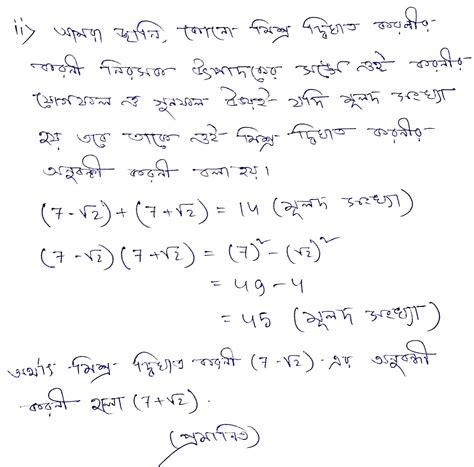 ii) আমরা জানি, কোনো মিশ্র দ্বিঘাত করণীর
করণী নিরসক উৎপাদকের সঙ্গে ওই করণীর
যোগফল ও গুনফল উভয়ই যদি মূলদ সংখ্যা
হয় তবে তাকে ওই মিশ্র দ্বিঘাত করণীর
অনুবন্ধী করণী বলা হয়।
(7-√2)+(7+√2) = 14 (মূলদ সংখ্যা)
(7-√2)(7+√2) = (7)² - (√2)²
= 49 - 4
= 45 (মূলদ সংখ্যা)
অর্থাৎ মিশ্র দ্বিঘাত করণী (7-√2) এর অনুবন্ধী
করণী হলো (7+√2).
(প্রমানিত)